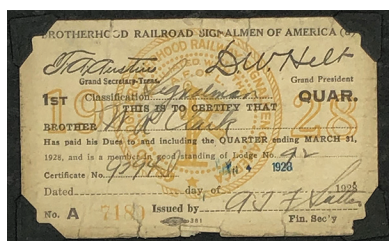 BROTHERHOOD RAILROAD SIGNALMEN OF AMERICA
D W Helt
Grand Secretary-Treas. Grand President
1ST Classification Signalman QUAR.
THIS IS TO CERTIFY THAT
1928
BROTHER W R Clark
Has paid his Dues to and including the QUARTER ending MARCH 31,
1928, and is a member in good standing of Lodge No. 92
Certificate No. JAN 4 1928
Dated day of 1928
No. A 7180 Issued by
381 Fin. Sec'y